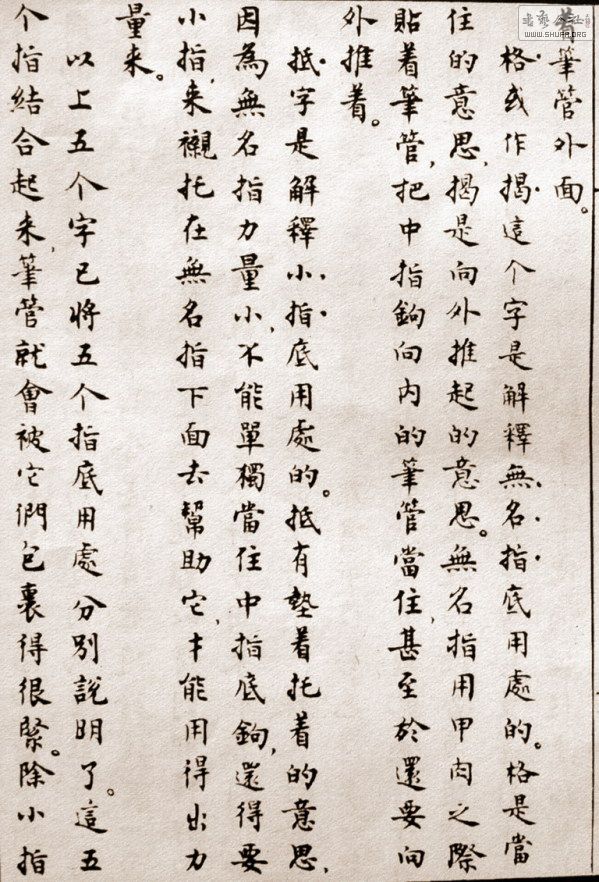 着筆管外面。
格或作揭，這个字是解釋無名指底用處的。格是當
住的意思，揭是向外推起的意思。無名指用甲肉之際
貼着筆管，把中指鉤向內的筆管當住，甚至於還要向
外推着。
抵字是解釋小指底用處的。抵有墊着托着的意思，
因為無名指力量小，不能單獨當住中指底鉤，還得要
小指，来襯托在無名指下面去幫助它，才能用得出力
量来。
以上五个字已將五个指底用處分別說明了。這五
个指結合起来，筆管就會被它們包裹得很緊。除小指
WWW.SHUFA.ORG